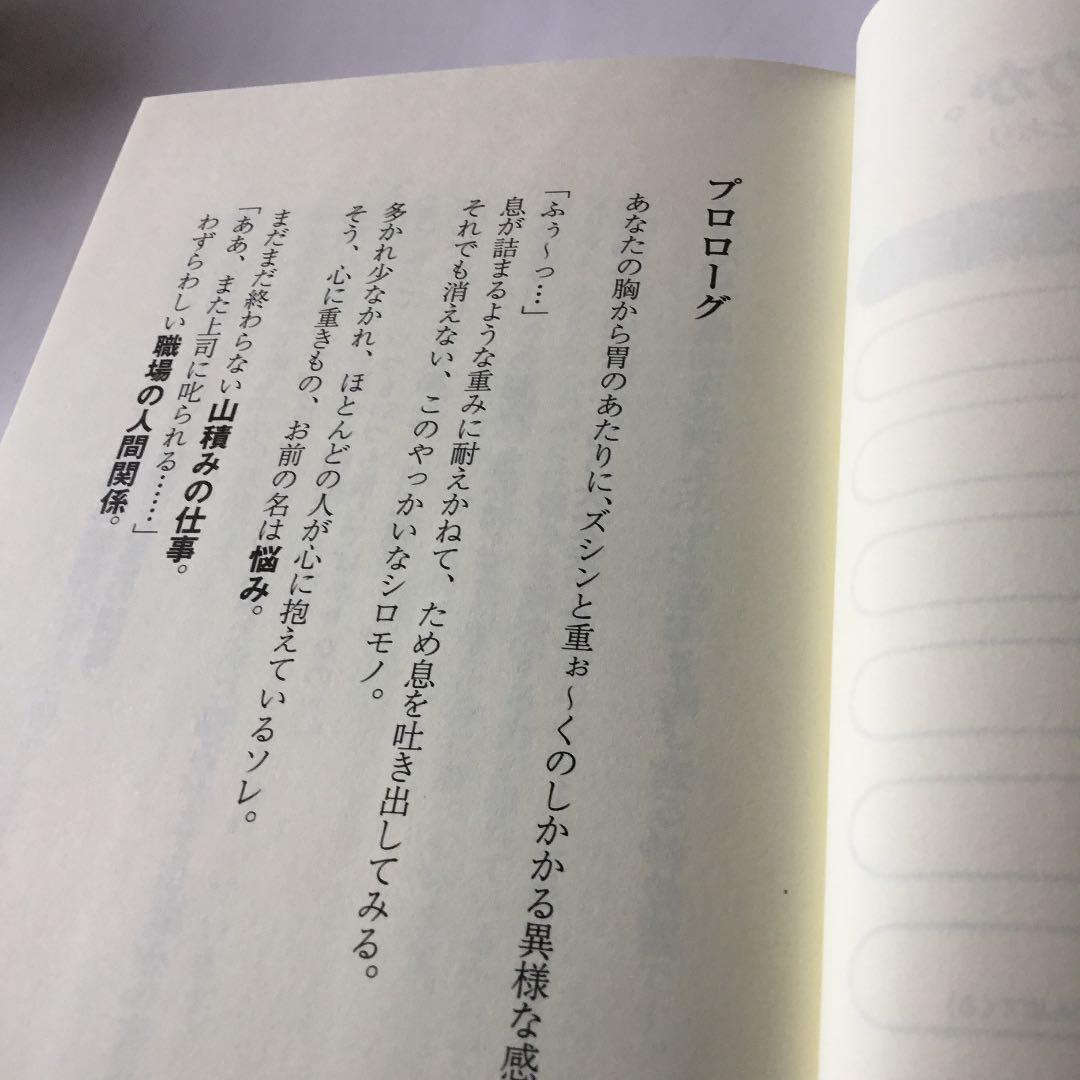 プロローグ
あなたの胸から胃のあたりに、ズシンと重ぉ～くのしかかる異様な感
「ふぅ～っ…」
息が詰まるような重みに耐えかねて、ため息を吐き出してみる。
それでも消えない、このやっかいなシロモノ。
多かれ少なかれ、ほとんどの人が心に抱えているソレ。
そう、心に重きもの、お前の名は悩み。
まだまだ終わらない山積みの仕事。
「ああ、また上司に叱られる……」
わずらわしい職場の人間関係。